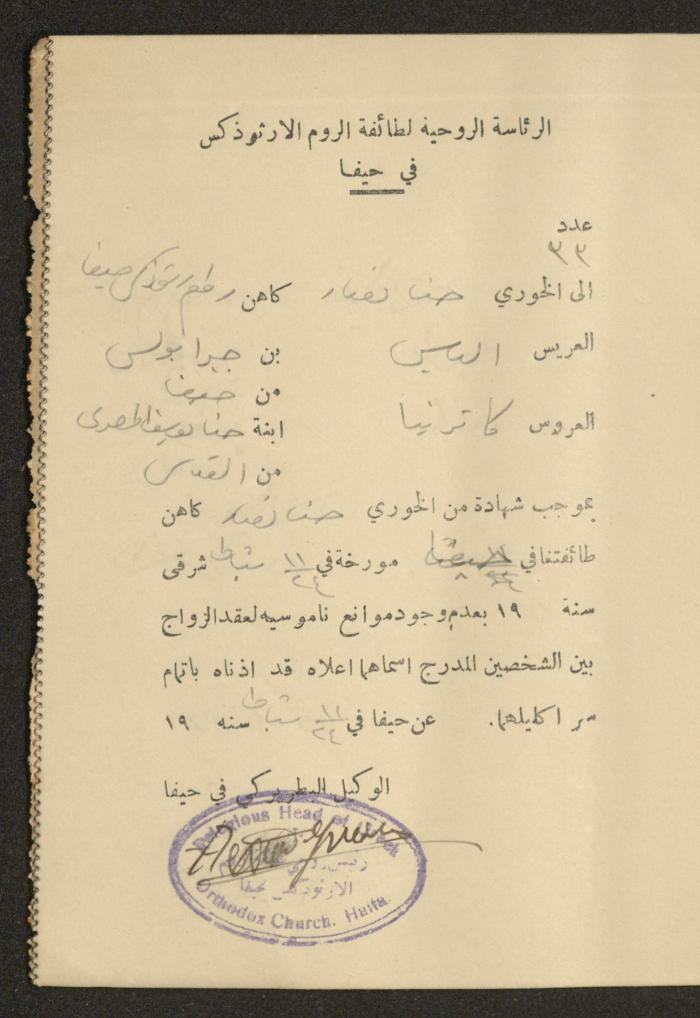 الرئاسة الروحية لطائفة الروم الارثوذكس
في حيفا
عدد
٣٣
الى الخوري حنا نصار كاهن
العريس الياس بن جبرا بولس
من حيفا
العروس كاترنيا ابنة حنا يوسف المصري
من القدس
بموجب شهادة من الخوري حنا نصار كاهن
طائفتنا في حيفا مورخة في ١١/٢٤ شباط شرقى
سنة ١٩ بعدم وجود موانع ناموسيه لعقد الزواج
بين الشخصين المدرج اسماهما اعلاه قد اذناه باتمام
سر اكليلهما. عن حيفا في ١١/٢٤ شباط سنه ١٩
الوكيل البطريركي في حيفا
Religious Head of Greek
رئيس
الارثوذكس بحيفا
Orthodox Church. Haifa.